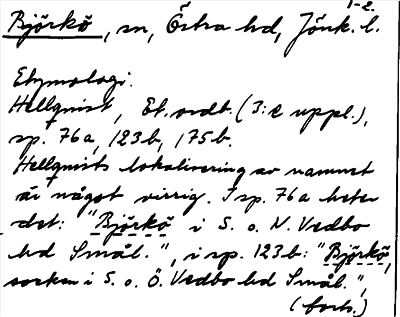 1-2.
Björkö, sn, Östra hd, Jönk. l.
Etymologi.
Hellquist, Et. ordb. (3:e uppl.),
sp. 76a, 123b, 175b.
Hellquists lokalisering av namnet
är något virrig. I sp. 76a heter
det: "Björkö i S. o. N. Vedbo
hd Smål.", i sp. 123b: "Björkö,
socken i S. o. Ö. Vedbo hd Smål.",
(forts.)